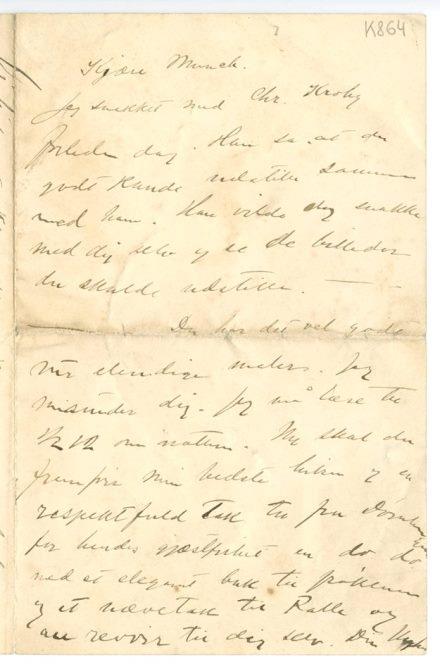 K864
Kjære Munch.
Jeg snakket med Chr. Krohg
forleden dag. Han sa at du
godt kunde udstille sammen
med ham. Han vilde dog snakke
med dig selv og se de billeder
du skulde udstille. —
Du har det vel godt
elendige maleri. Jeg
misunder dig. Jeg må læse til
½ 12 om natten. Nu skal du
fremføre min bedste hilsen og en
respektfuld Tak til fru
for hendes gjæstfrihed en do do
med et elegant buk til frøkenen
og et nævetak til Kalle og
au revoir til dig selv. Din